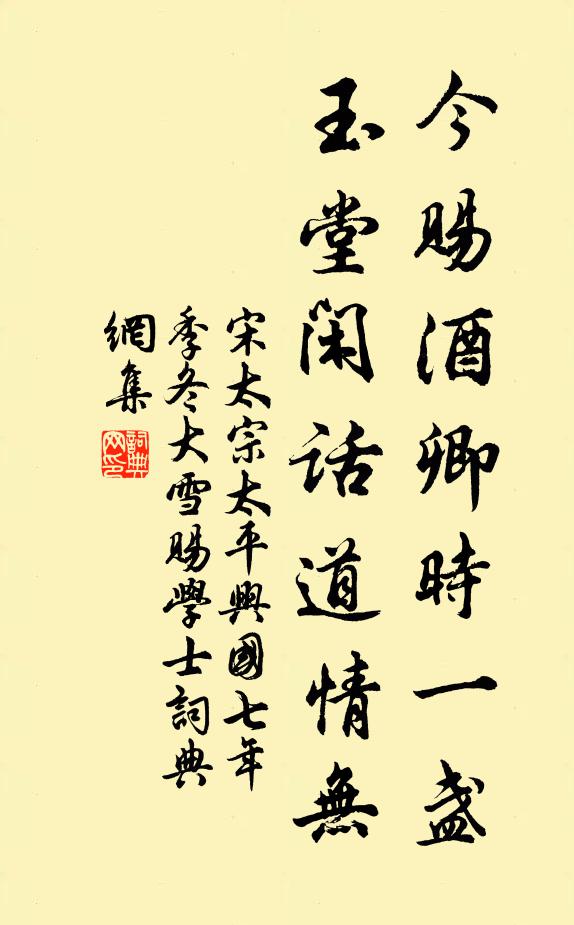 今賜酒卿時一盞
玉堂閑話道情無
宋太宗太平興國七年
季冬大雪賜學士詞典
網集
詞典網印